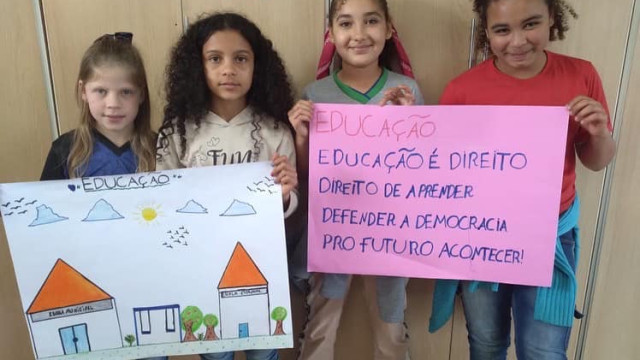 EDUCAÇÃO
ESCOLA MUNICIPAL
FUN
EDUCAÇÃO
EDUCAÇÃO É DIREITO
DIREITO DE APRENDER
DEFENDER A DEMOCRACIA
PRO FUTURO ACONTECER!